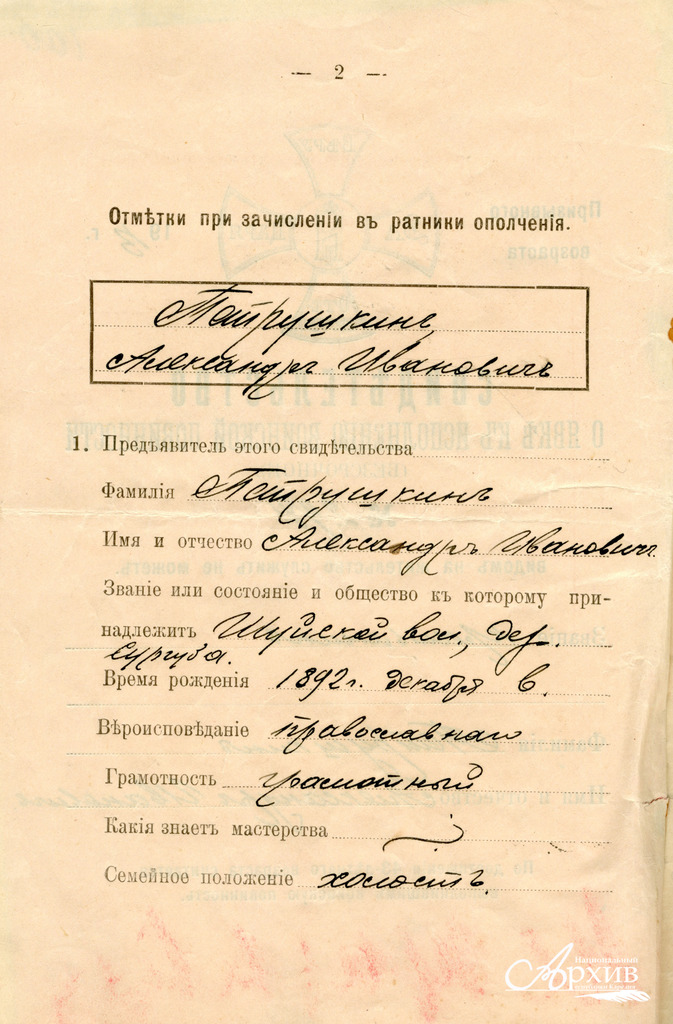 — 2 —
Отмѣтки при зачисленіи въ ратники ополченія.
Патрушкинъ
Александръ Ивановичъ
1. Предъявитель этого свидѣтельства
Фамилія Патрушкинъ
Имя и отчество Александръ Ивановичъ
Званіе или состояніе и общество къ которому при-
надлежитъ Шуйской вол., дер.
Сургуба.
Время рожденія 1892 г. декабря 6.
Вѣроисповѣданіе православнаго
Грамотность грамотный
Какія знаетъ мастерства
Семейное положеніе холостъ.
Национальный
Архив